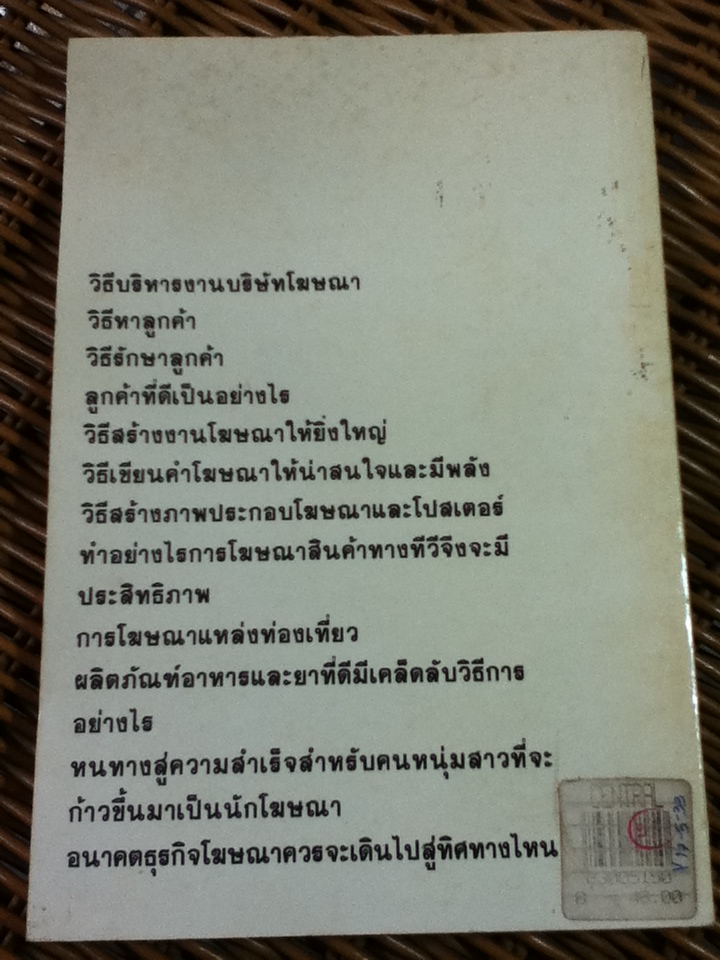 วิธีบริหารงานบริษัทโฆษณา
วิธีหาลูกค้า
วิธีรักษาลูกค้า
ลูกค้าที่ดีเป็นอย่างไร
วิธีสร้างงานโฆษณาให้ยิ่งใหญ่
วิธีเขียนคำโฆษณาให้น่าสนใจและมีพลัง
วิธีสร้างภาพประกอบโฆษณาและโปสเตอร์
ทำอย่างไรการโฆษณาสินค้าทางทีวีจึงจะมี
ประสิทธิภาพ
การโฆษณาแหล่งท่องเที่ยว
ผลิตภัณฑ์อาหารและยาที่ดีมีเคล็ดลับวิธีการ
อย่างไร
หนทางสู่ความสำเร็จสำหรับคนหนุ่มสาวที่จะ
ก้าวขึ้นมาเป็นนักโฆษณา
อนาคตธุรกิจโฆษณาควรจะเดินไปสู่ทิศทางไหน
CENTRAL